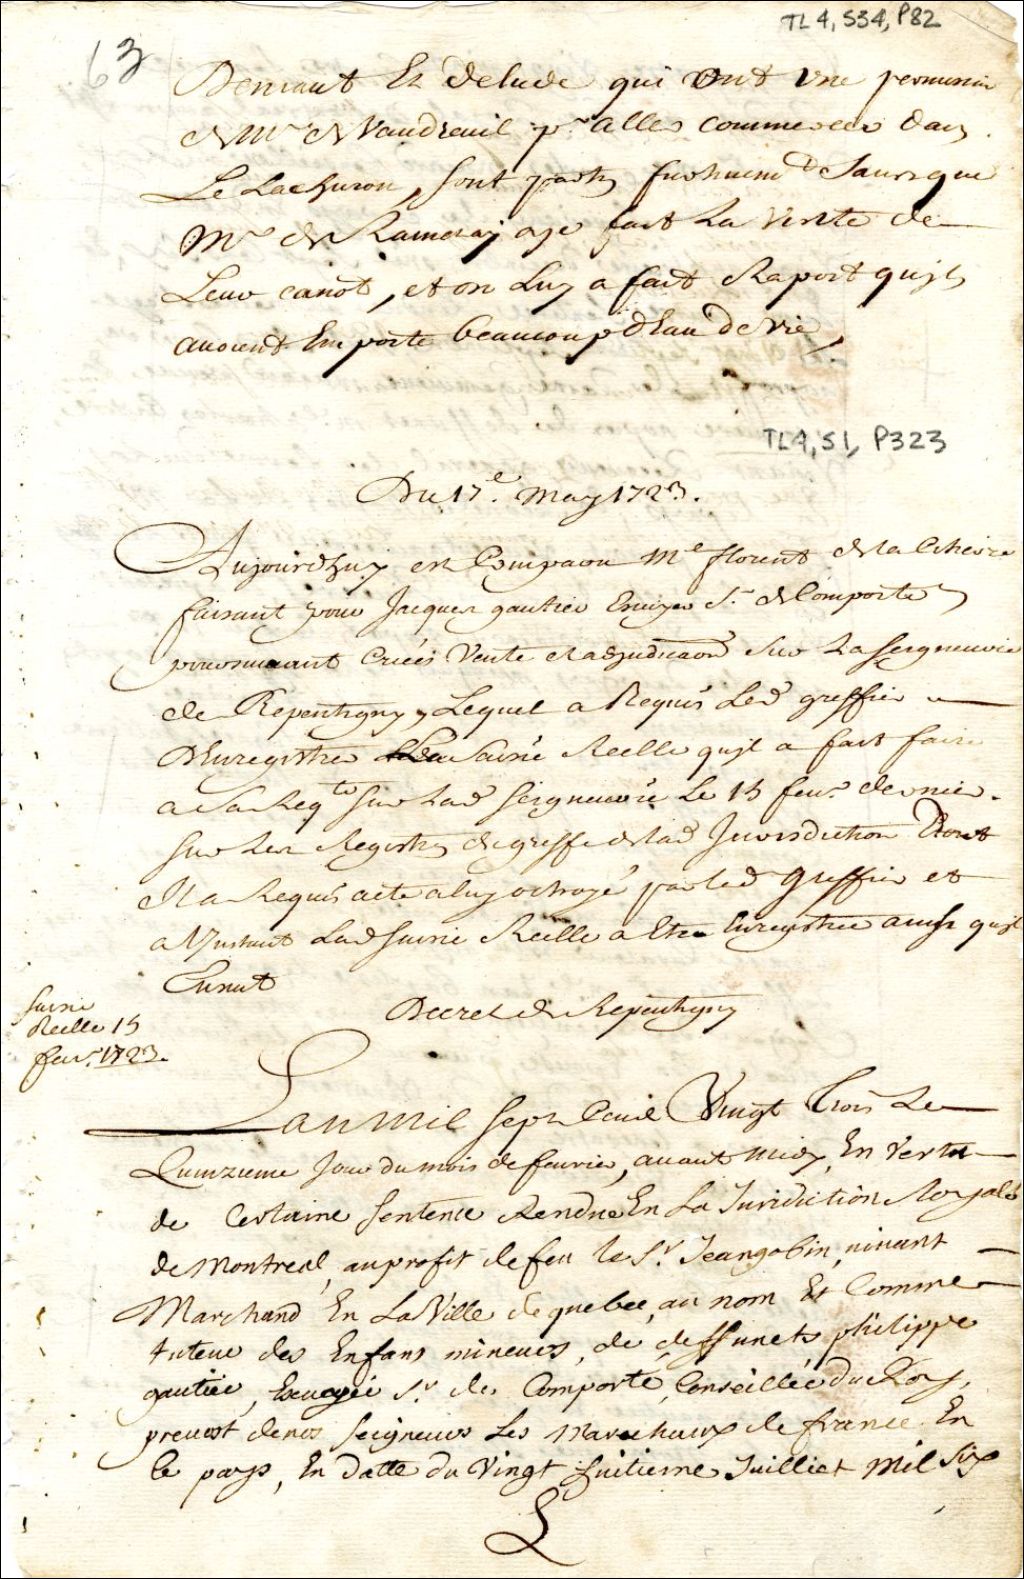 TL4, S34, P82
63
Demant Et delude qui ont une permission
de Mr de Vaudreuil pr aller commercer dans
Le Lac huron, sont partis sans
Mr de Ramezay aye fait La visite de
Leur canot, et on Luy a fait Raport quils
avoient Emporté beaucoup dEau de vie,
TL4, S1, P323
Du 17e. May 1723.
Aujourdhuy est Comparu Me florent de la Cetiere
faisant pour Jacques gautier Ecuyer Sr. de Comporté
poursuivant Criées Vente et adjudicaon sur La Seigneurie
de Repentigny, Lequel a Requis Led greffier
dEnregistrer La Saisie Reelle quil a fait faire
a Sa Reqte sur Lad Seigneurie Le 15 feur. dernier.
Sur Les Registres du greffe de lad Jurisdiction Dont
Il a Requis acte a luy octroyé par led Greffier et
a L'instant Lad saisie Reelle a Eté Enregistrée ainsi quil
Ensuit
Decret de Repentigny
Saisie
Reelle 15
feur. 1723.
Lan mil Sept Cent Vingt Trois Le
Quinzieme Jour du mois de feurier, auant midy, En Vertu
de Certaine Sentence Rendue En La Juridiction Royale
de Montreal, au profit de feu le Sr. Jean gobin, uiuant
Marchand En La Ville de quebec, au nom Et Comme
tuteur des Enfans mineurs, de deffunct philippe
gautier, Escuyer Sr. de Comporté, Conseiller du Roy,
preuost de nos Seigneurs Les Marechaux de france En
ce pays, En datte du Vingt huitieme Juilliet Mil Six